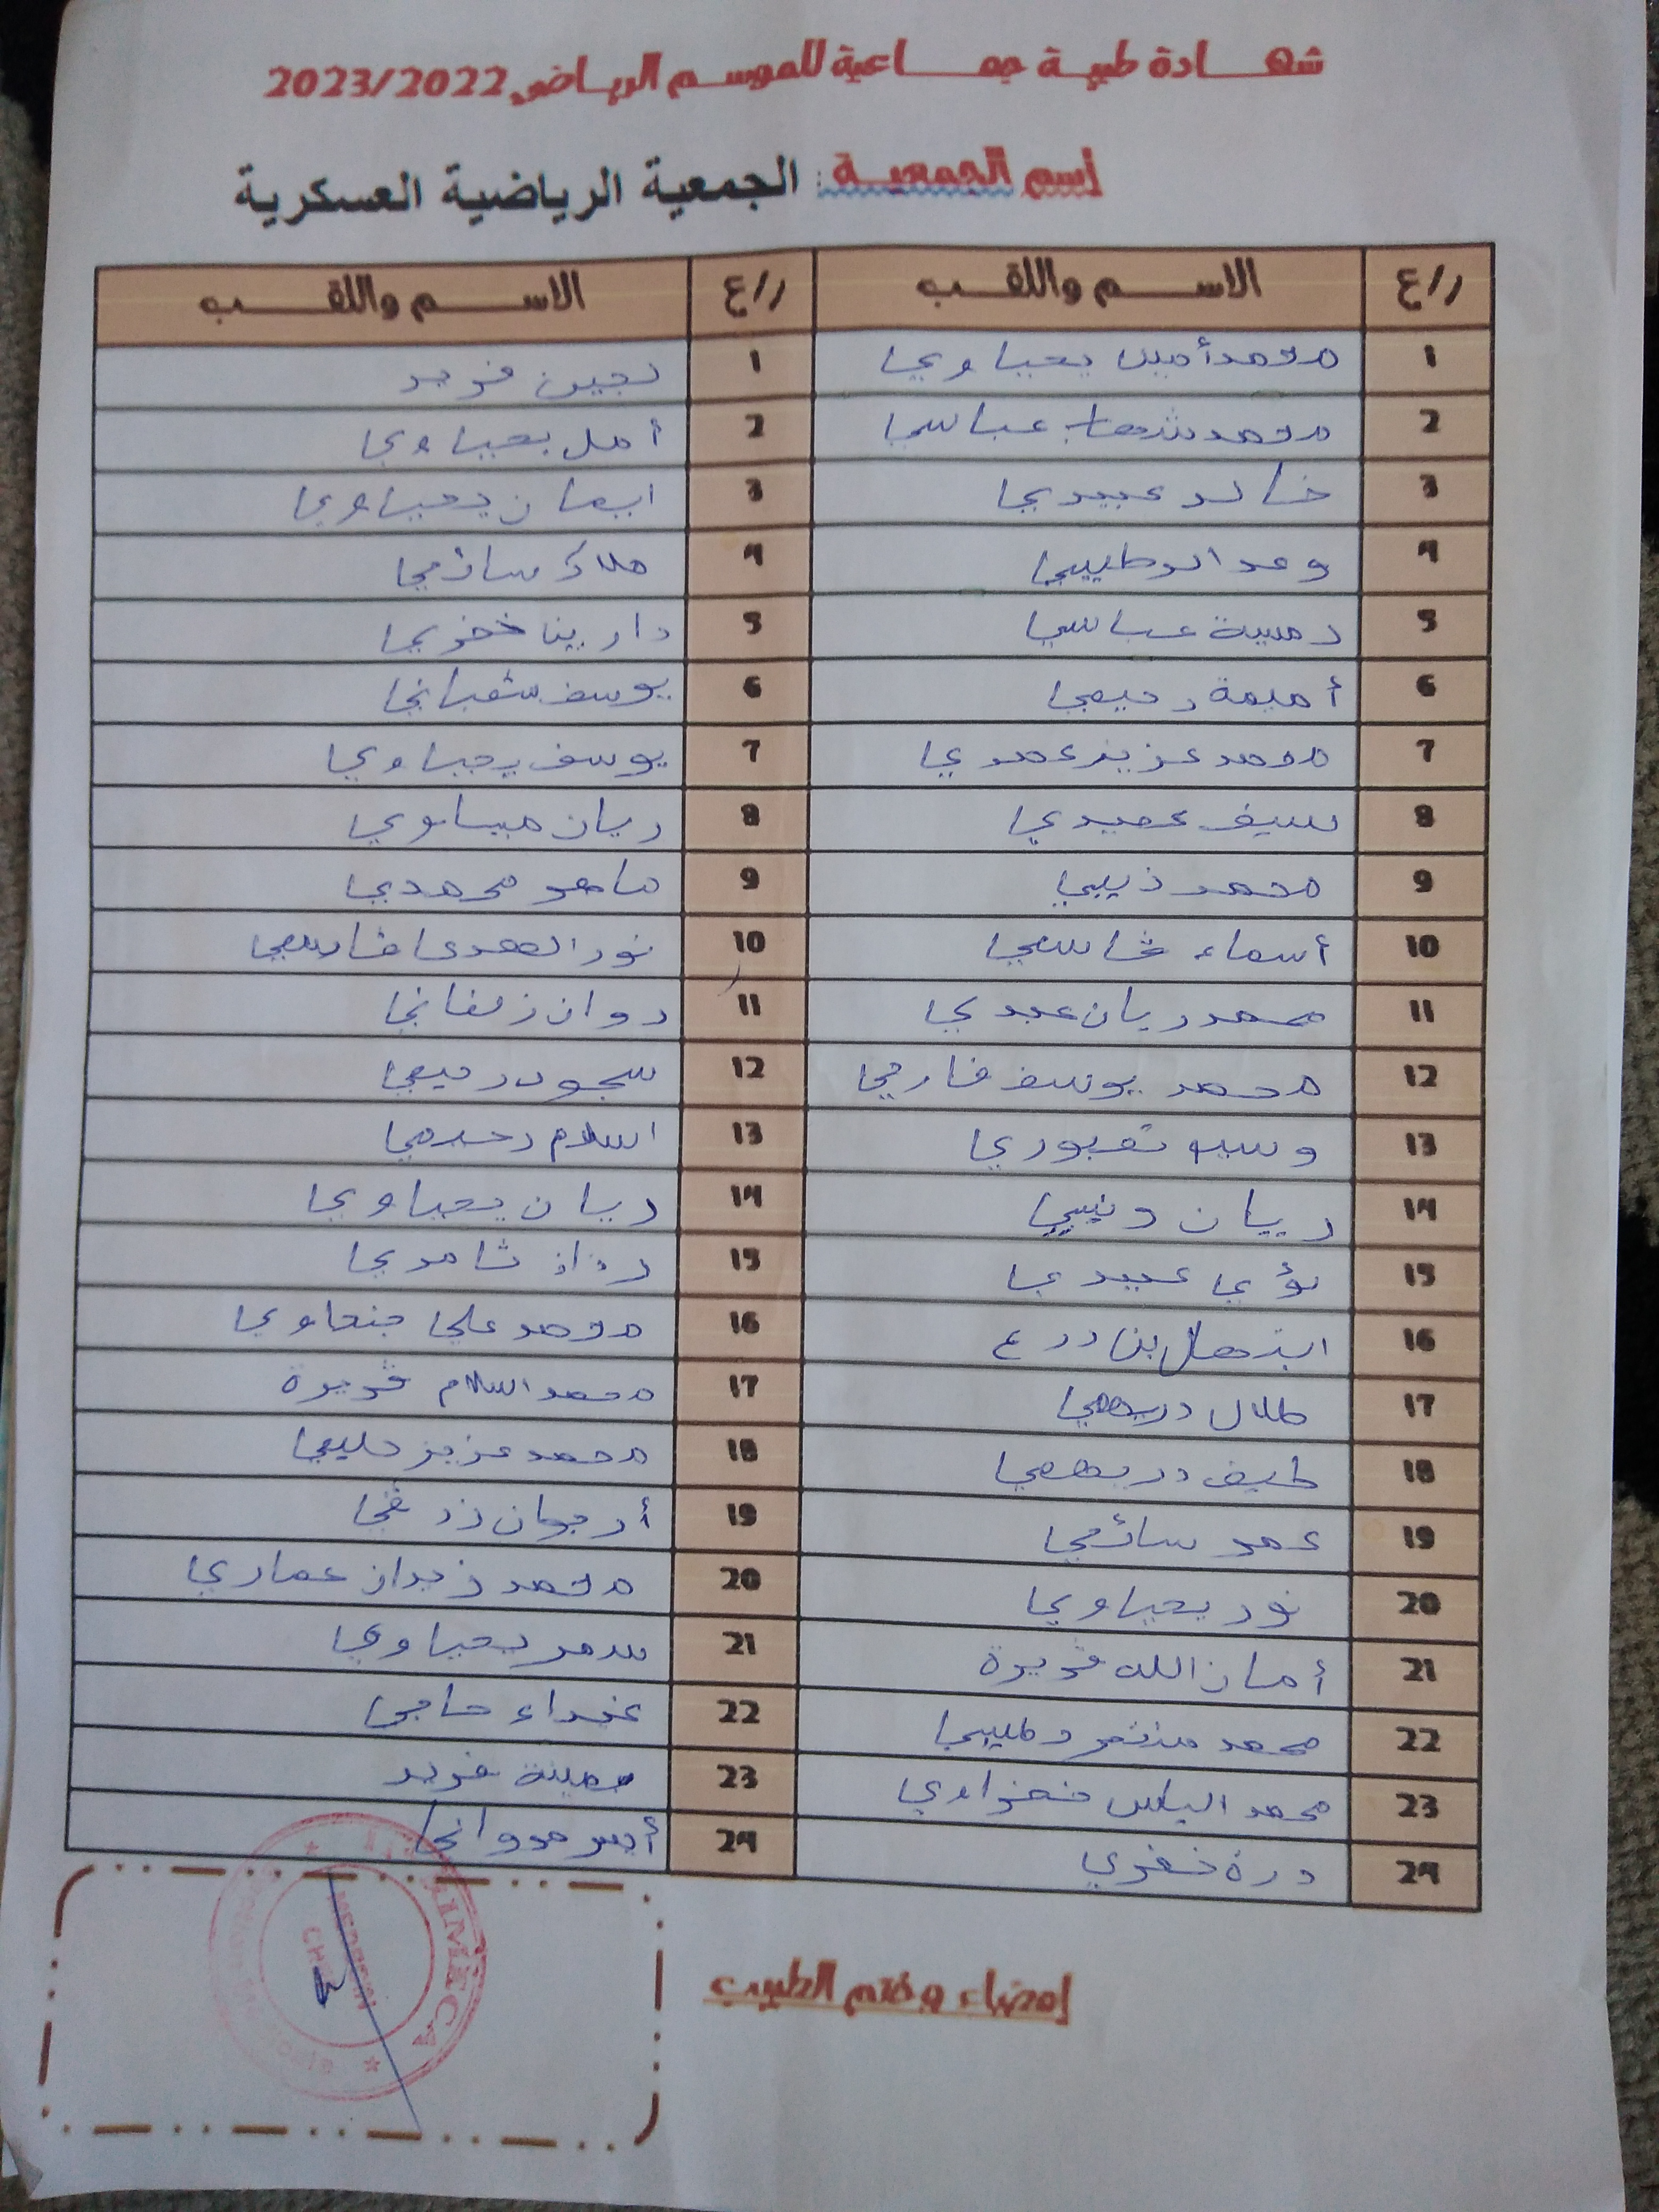 شهادة طبية جماعية للموسم الرياضي 2023/2022
إسم الجمعية : الجمعية الرياضية العسكرية
ر/ع الاسم واللقب ر/ع الاسم واللقب
1 محمد أمين يحياوي 1 لجين فريد
2 محمد شهاب عباسي 2 أمل يحياوي
3 خالد عبيدي 3 ايمان يحياوي
4 وعد الرطيبي 4 ملاك سائمي
5 دميسة عباسي 5 دارينا خضري
6 أميمة رحيمي 6 يوسف شعباني
7 محمد عزيز عمدي 7 يوسف يحياوي
8 سيف عميدي 8 ريان عيساوي
9 محمد ذيبي 9 ماهر محمدي
10 أسماء قاسمي 10 نور الهدى قاسمي
11 محمد ريان عبدي 11 روان زلفاني
12 محمد يوسف فارحي 12 سجود رحيمي
13 وسيم تعبوري 13 اسلام رحيمي
14 ريان ذيبي 14 ريان يحياوي
15 لؤي عبيدي 15 رزان ثامري
16 ابتهال بن درع 16 محمد علي جنحاوي
17 طلال دريهمي 17 محمد السلام قريرة
18 طيف دريهمي 18 محمد عزيز حليمي
19 عمر سائمي 19 أرجوان زرقي
20 نور يحياوي 20 محمد زيدان عماري
21 أمان الله قريرة 21 سمر يحياوي
22 محمد منتصر رطيبي 22 غيداء حاجي
23 محمد الياس نفزاوي 23 يمينة فريد
24 درة خضري 24 أيسر مرواني
إمضاء وختم الطبيب
MEDECIN